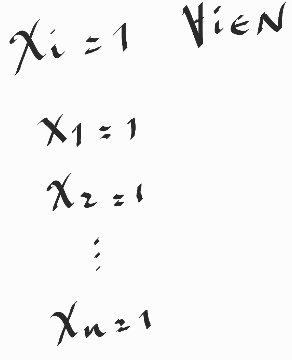 Xi = 1 ∀i∈N
X1 = 1
X2 = 1
⋮
Xn = 1